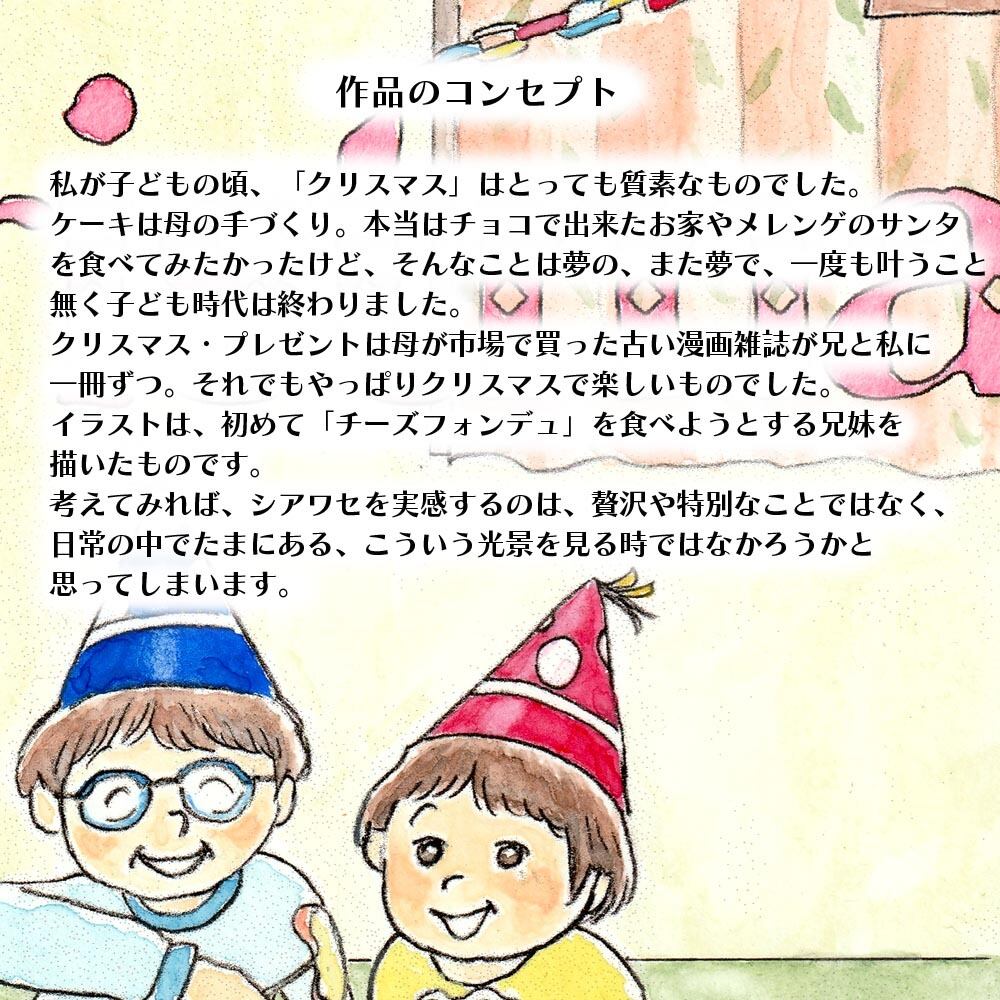 作品のコンセプト
私が子どもの頃、「クリスマス」はとっても質素なものでした。
ケーキは母の手づくり。本当はチョコで出来たお家やメレンゲのサンタ
を食べてみたかったけど、そんなことは夢の、また夢で、一度も叶うこと
無く子ども時代は終わりました。
クリスマス・プレゼントは母が市場で買った古い漫画雑誌が兄と私に
一冊ずつ。それでもやっぱりクリスマスで楽しいものでした。
イラストは、初めて「チーズフォンデュ」を食べようとする兄妹を
描いたものです。
考えてみれば、シアワセを実感するのは、贅沢や特別なことではなく、
日常の中でたまにある、こういう光景を見る時ではなかろうかと
思ってしまいます。